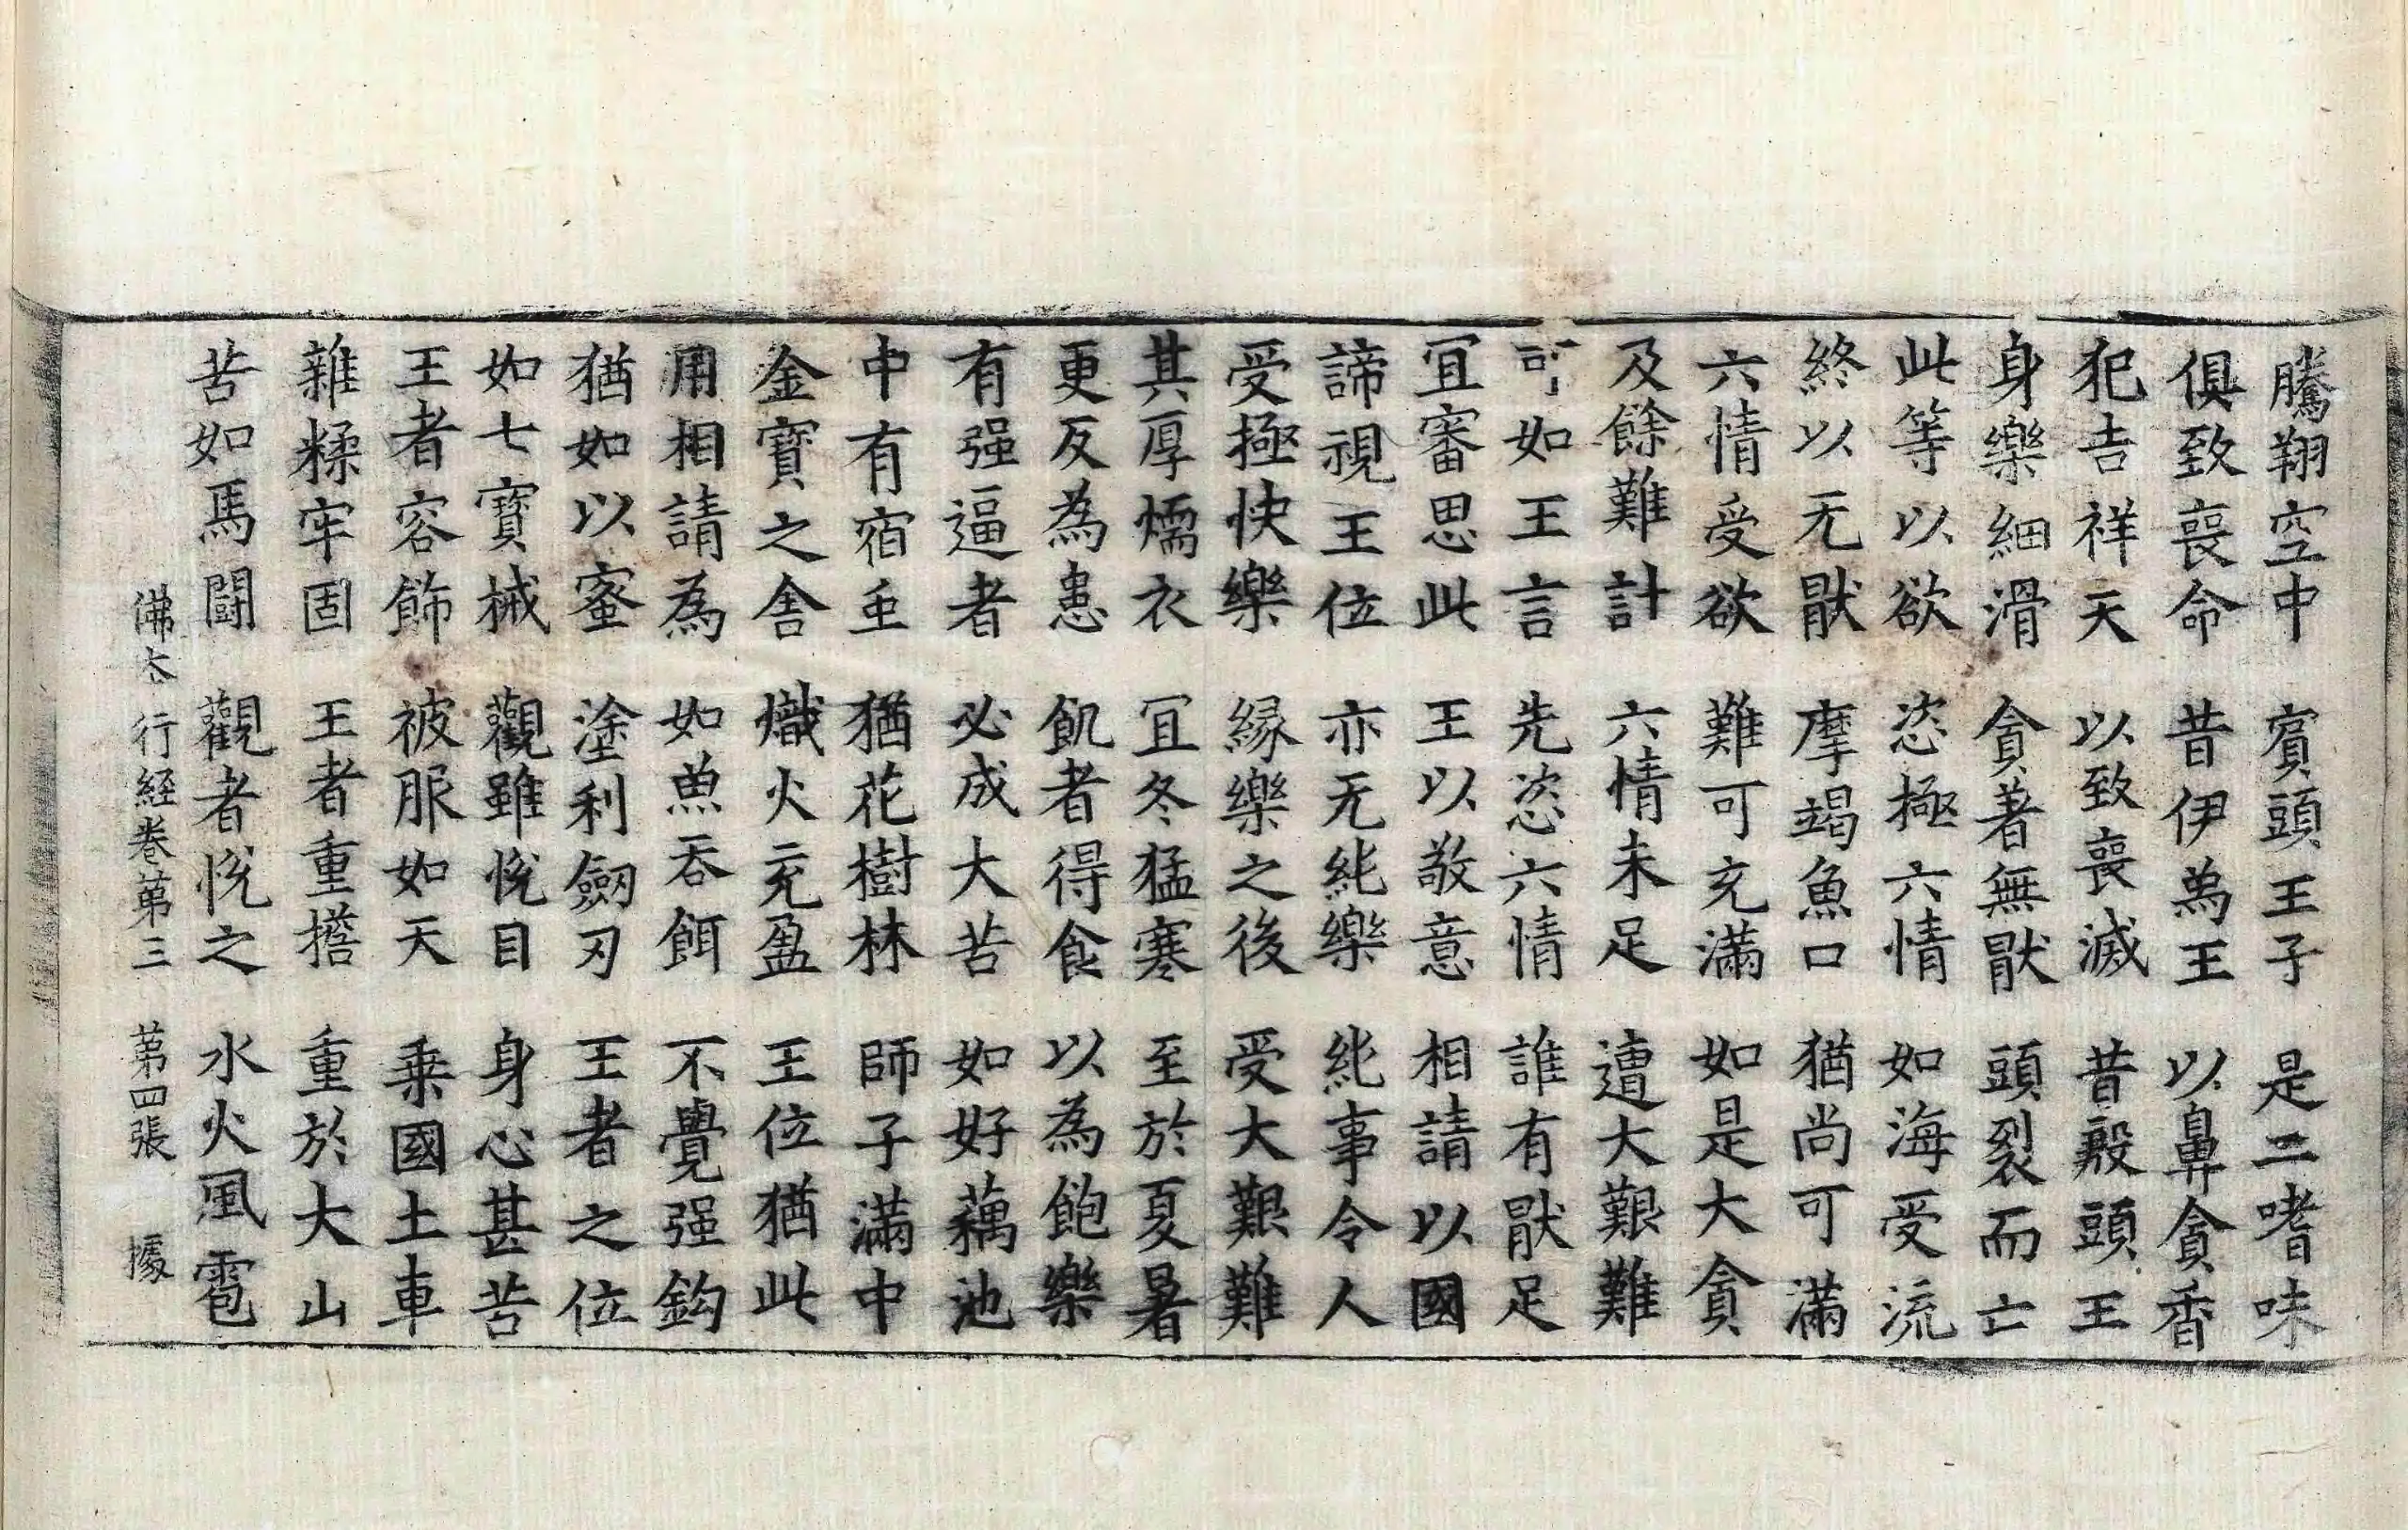 騰翔空中 賓頭王子 是二嗜味
俱致喪命 昔伊為王 以鼻貪香
犯吉祥天 以致喪滅 昔殺頭王
身樂細滑 貪著無猒 頭裂而亡
此等以欲 恣極六情 如海受流
終以无猒 摩竭魚口 猶尚可滿
六情受欲 難可充滿 如是大貪
及餘難計 六情未足 遭大艱難
可如王言 先恣六情 誰有猒足
冝審思此 王以敬意 相請以國
諦視王位 亦无純樂 純事令人
受極快樂 縁樂之後 受大艱難
其厚燸衣 冝冬猛寒 至於夏暑
更反為患 飢者得食 以為飽樂
有强逼者 必成大苦 如好藕池
中有宿虫 猶花樹林 師子滿中
金寶之舍 熾火充盈 王位猶此
用相請為 如魚吞餌 不覺强鈎
猶如以蜜 塗利劒刃 王者之位
如七寶械 觀雖悅目 身心甚苦
王者容飾 被服如天 乗國土車
雜糅牢固 王者重擔 重於大山
苦如馬鬪 觀者悅之 水火風雹
佛本行經卷苐三 苐四張 據